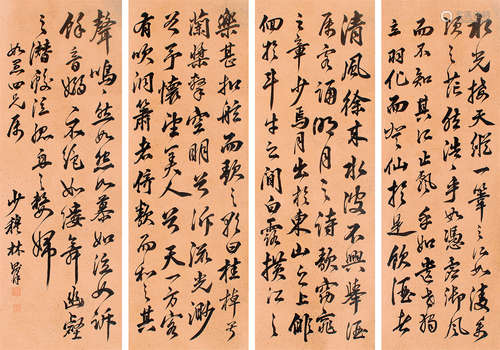 水光接天縱一葦之所如凌萬
頃之茫然浩浩乎如憑虛御風
而不知其所止飄乎如遺世獨
立羽化而登仙於是飲酒
清風徐來水波不興舉酒
屬客誦明月之詩歌窈窕
之章少焉月出於東山之上徘
徊於斗牛之間白露橫江
樂甚扣舷而歌之歌曰桂棹兮
蘭槳擊空明兮泝流光渺
兮予懷望美人兮天一方客
有吹洞簫者倚歌而和之其
聲嗚嗚然如怨如慕如泣如訴
餘音嫋嫋不絕如縷舞幽壑
之潛蛟泣孤舟之嫠婦
四兄屬
少穆林則徐